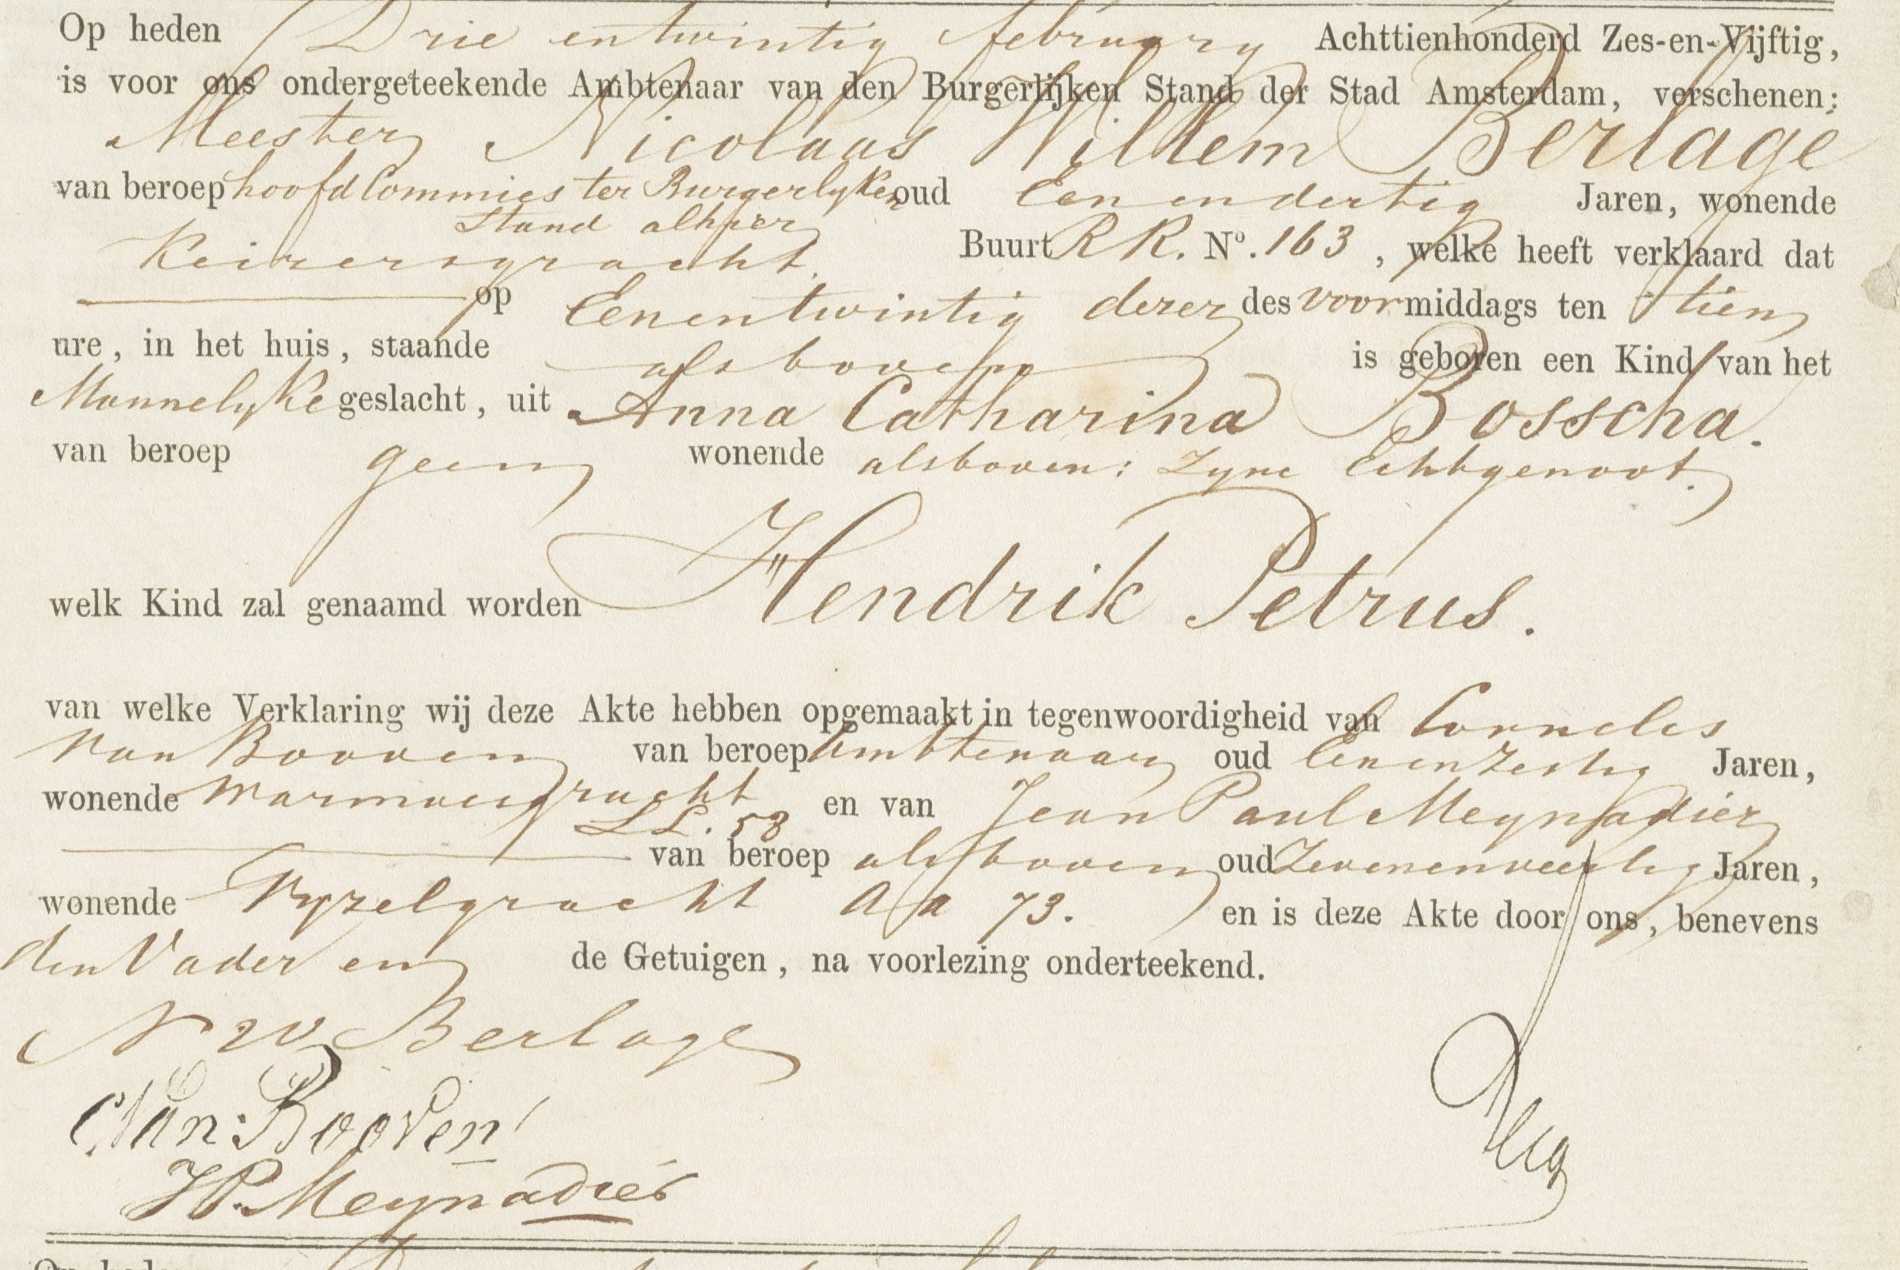 Op heden Drie en twintig february Achttienhonderd Zes-en-Vijftig,
is voor ons ondergeteekende Ambtenaar van den Burgerlijken Stand der Stad Amsterdam, verschenen:
Meester Nicolaas Willem Berlage
van beroep hoofd Commies ter Burgerlyken oud Een en dertig Jaren, wonende
Stand alhier
Keizersgracht. Buurt RR. No. 163, welke heeft verklaard dat
op Een en twintig dezer des voormiddags ten tien
ure, in het huis, staande als boven is geboren een Kind van het
Mannelyke geslacht, uit Anna Catharina Bosscha.
van beroep geen wonende alsboven: Zyne Echtgenoot.
welk Kind zal genaamd worden Hendrik Petrus.
van welke Verklaring wij deze Akte hebben opgemaakt in tegenwoordigheid van Cornelis
van Booven van beroep Ambtenaar oud Eenenzestig Jaren,
wonende Warmoesgracht en van Jean Paul Meynadier
LL. 58
van beroep als boven oud Zevenenveertig Jaren,
wonende Vyzelgracht AA 73. en is deze Akte door ons, benevens
den Vader en de Getuigen, na voorlezing onderteekend.
N W Berlage
C Van Booven
JP. Meynadier
Op heden